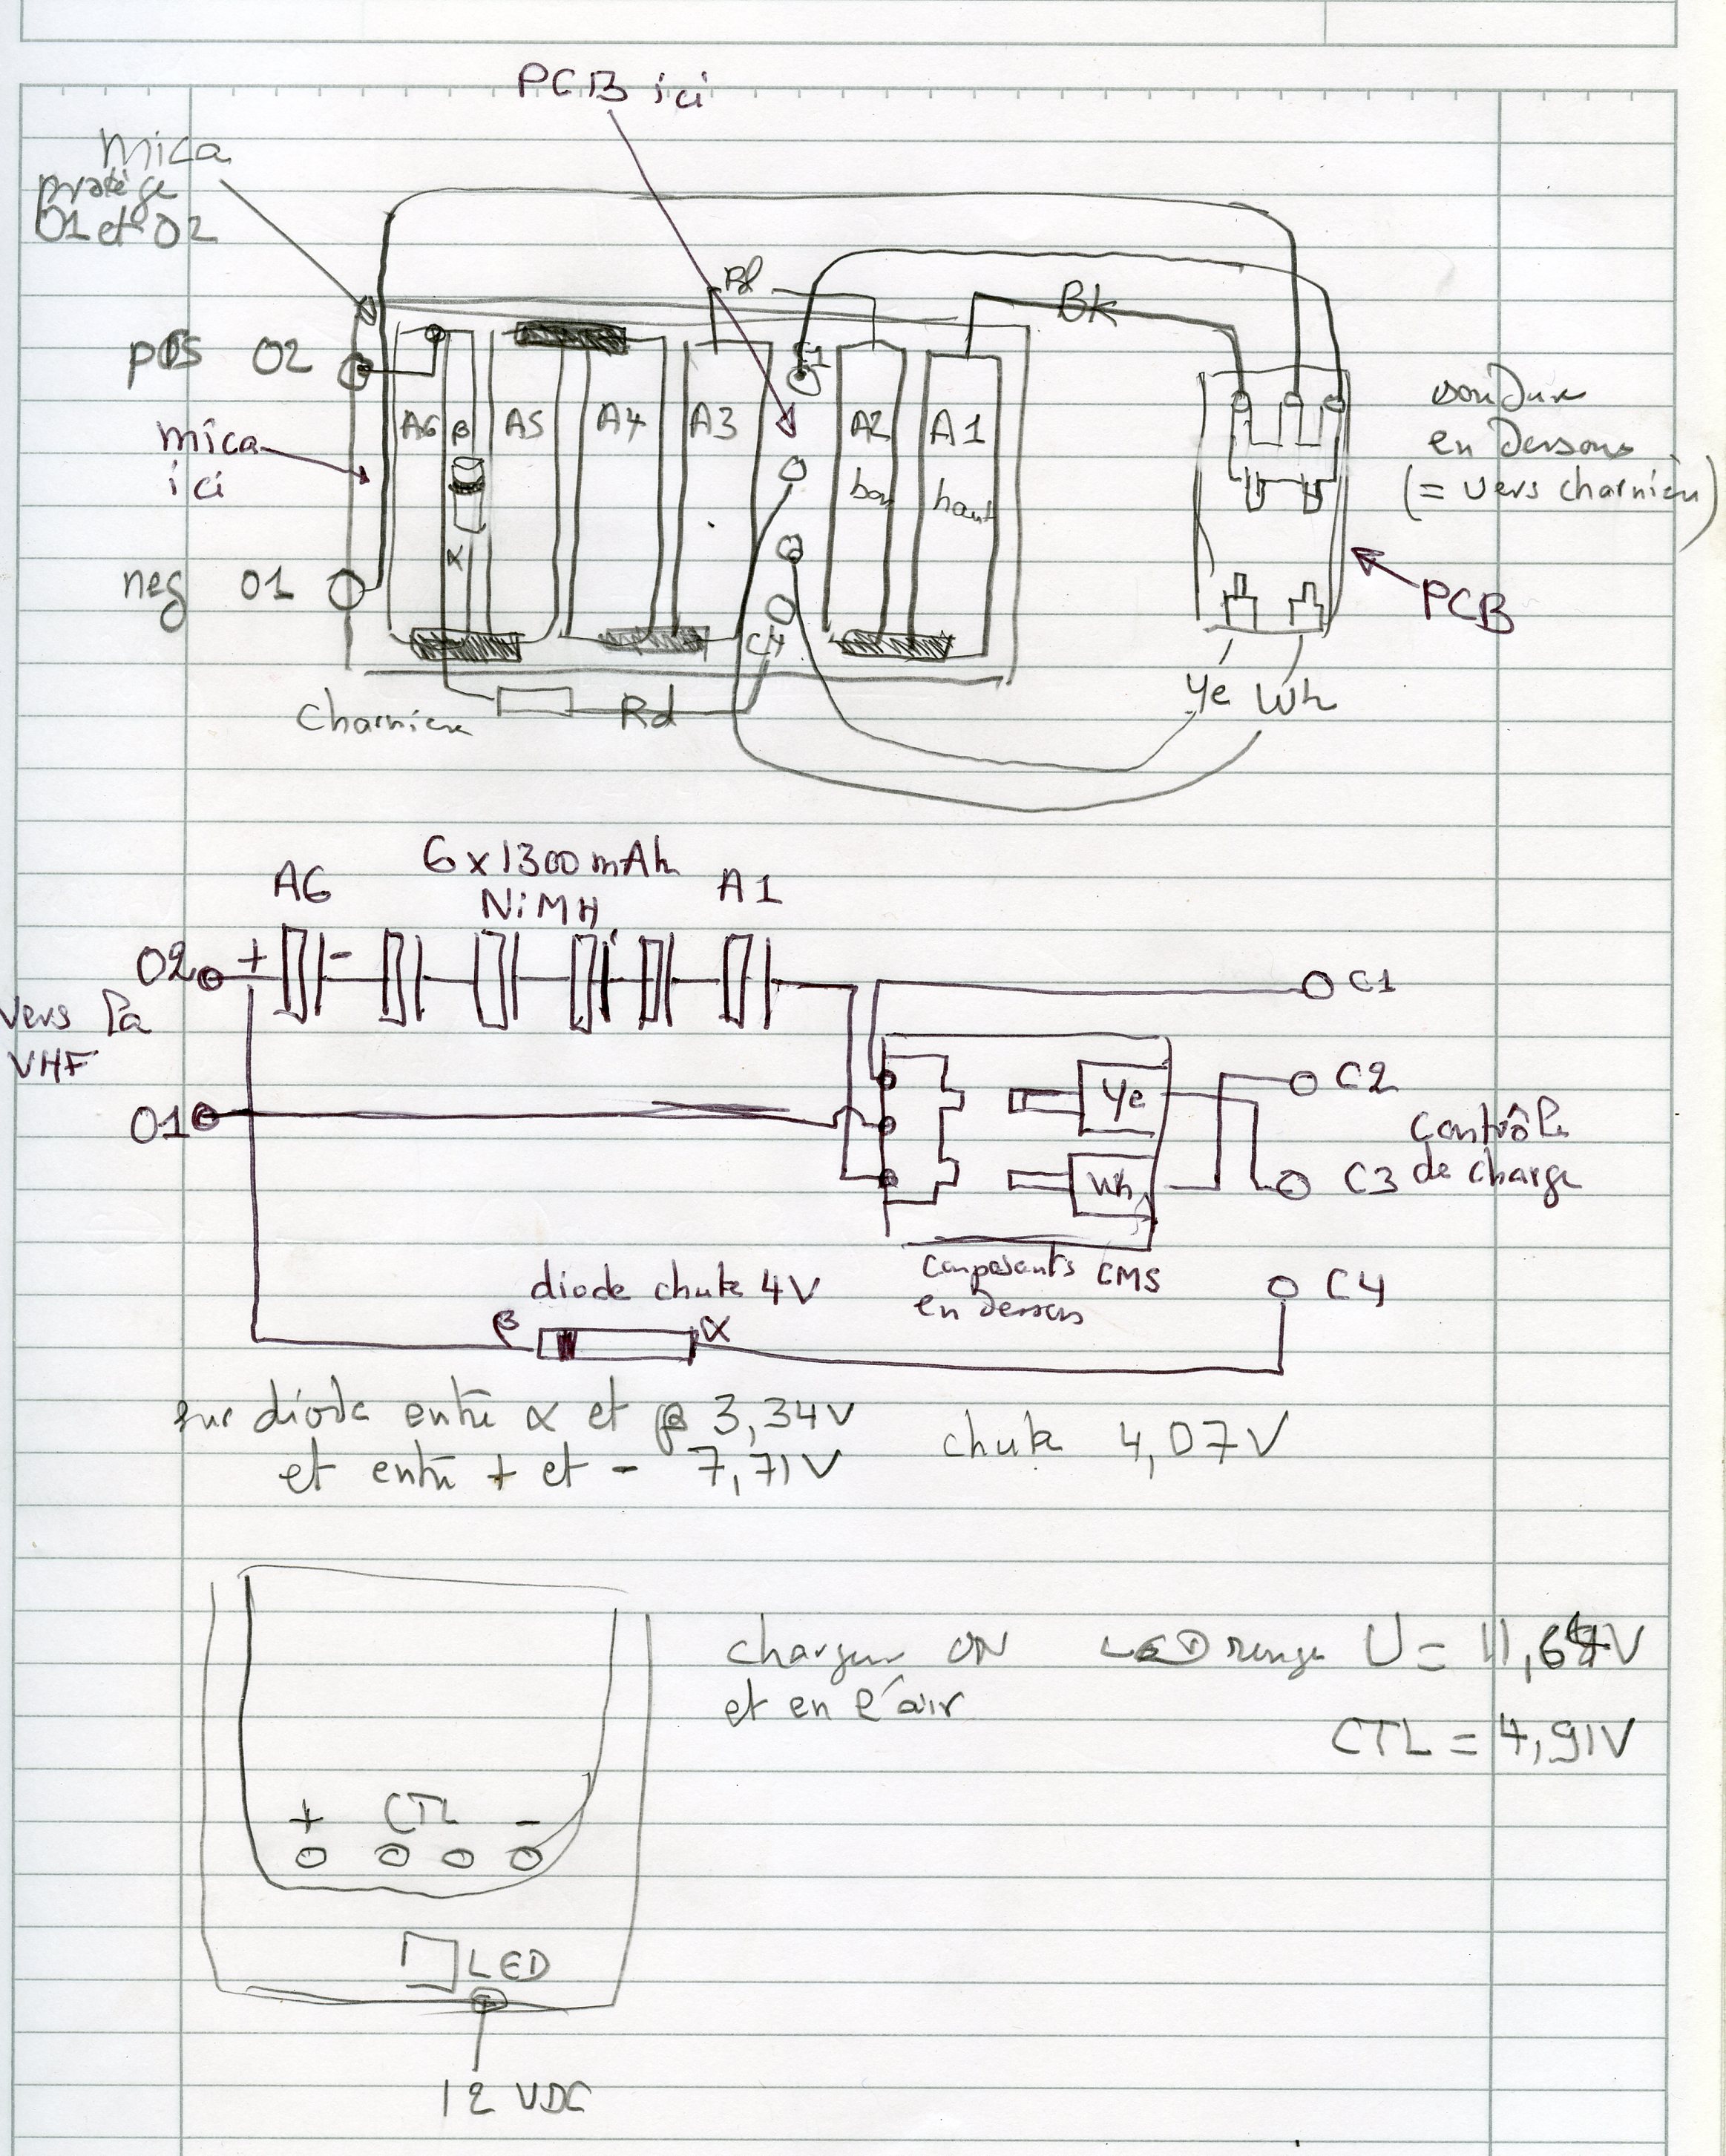 PCB ici
mica
protège
01 et 02
Bk
pos 02
C1
mica
ici
A6 β A5 A4 A3 A2 A1
bas haut
α
soudure
en dessous
(= vers charnière)
neg 01
PCB
C4
Ye Wh
Charnière
Rd
6 x 1300 mAh
NiMH
A6
A1
02 + -
C1
vers la
VHF
01
Ye
C2
Wh
C3
contrôle
de charge
composants CMS
en dessous
diode chute 4V
C4
β α
sur diode entre α et β 3,34V
et entre + et - 7,71V
chute 4,07V
chargeur ON LED rouge U = 11,64V
et en l'air
CTL = 4,91V
+ CTL -
LED
12 VDC